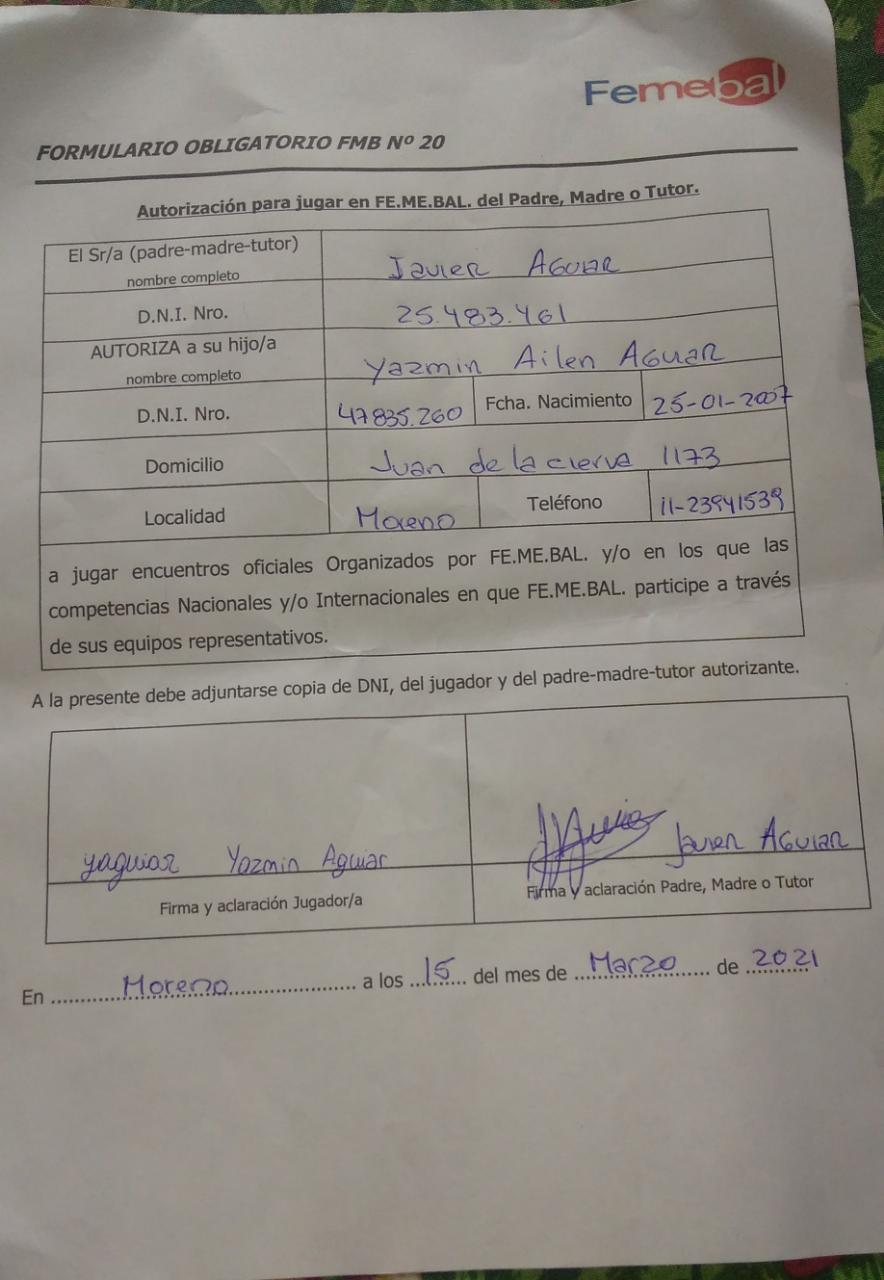 Femebal
FORMULARIO OBLIGATORIO FMB Nº 20
Autorización para jugar en FE.ME.BAL. del Padre, Madre o Tutor.
El Sr/a (padre-madre-tutor)
nombre completo
Javier Aguiar
D.N.I. Nro.
25.483.461
AUTORIZA a su hijo/a
nombre completo
Yazmin Ailen Aguiar
D.N.I. Nro.
47835.260
Fcha. Nacimiento
25-01-2007
Domicilio
Juan de la cierva 1173
Localidad
Moreno
Teléfono
11-23941539
a jugar encuentros oficiales Organizados por FE.ME.BAL. y/o en los que las
competencias Nacionales y/o Internacionales en que FE.ME.BAL. participe a través
de sus equipos representativos.
A la presente debe adjuntarse copia de DNI, del jugador y del padre-madre-tutor autorizante.
yaguiar Yazmin Aguiar
Javier Aguiar
Firma y aclaración Jugador/a
Firma y aclaración Padre, Madre o Tutor
En Moreno a los 15 del mes de Marzo de 2021